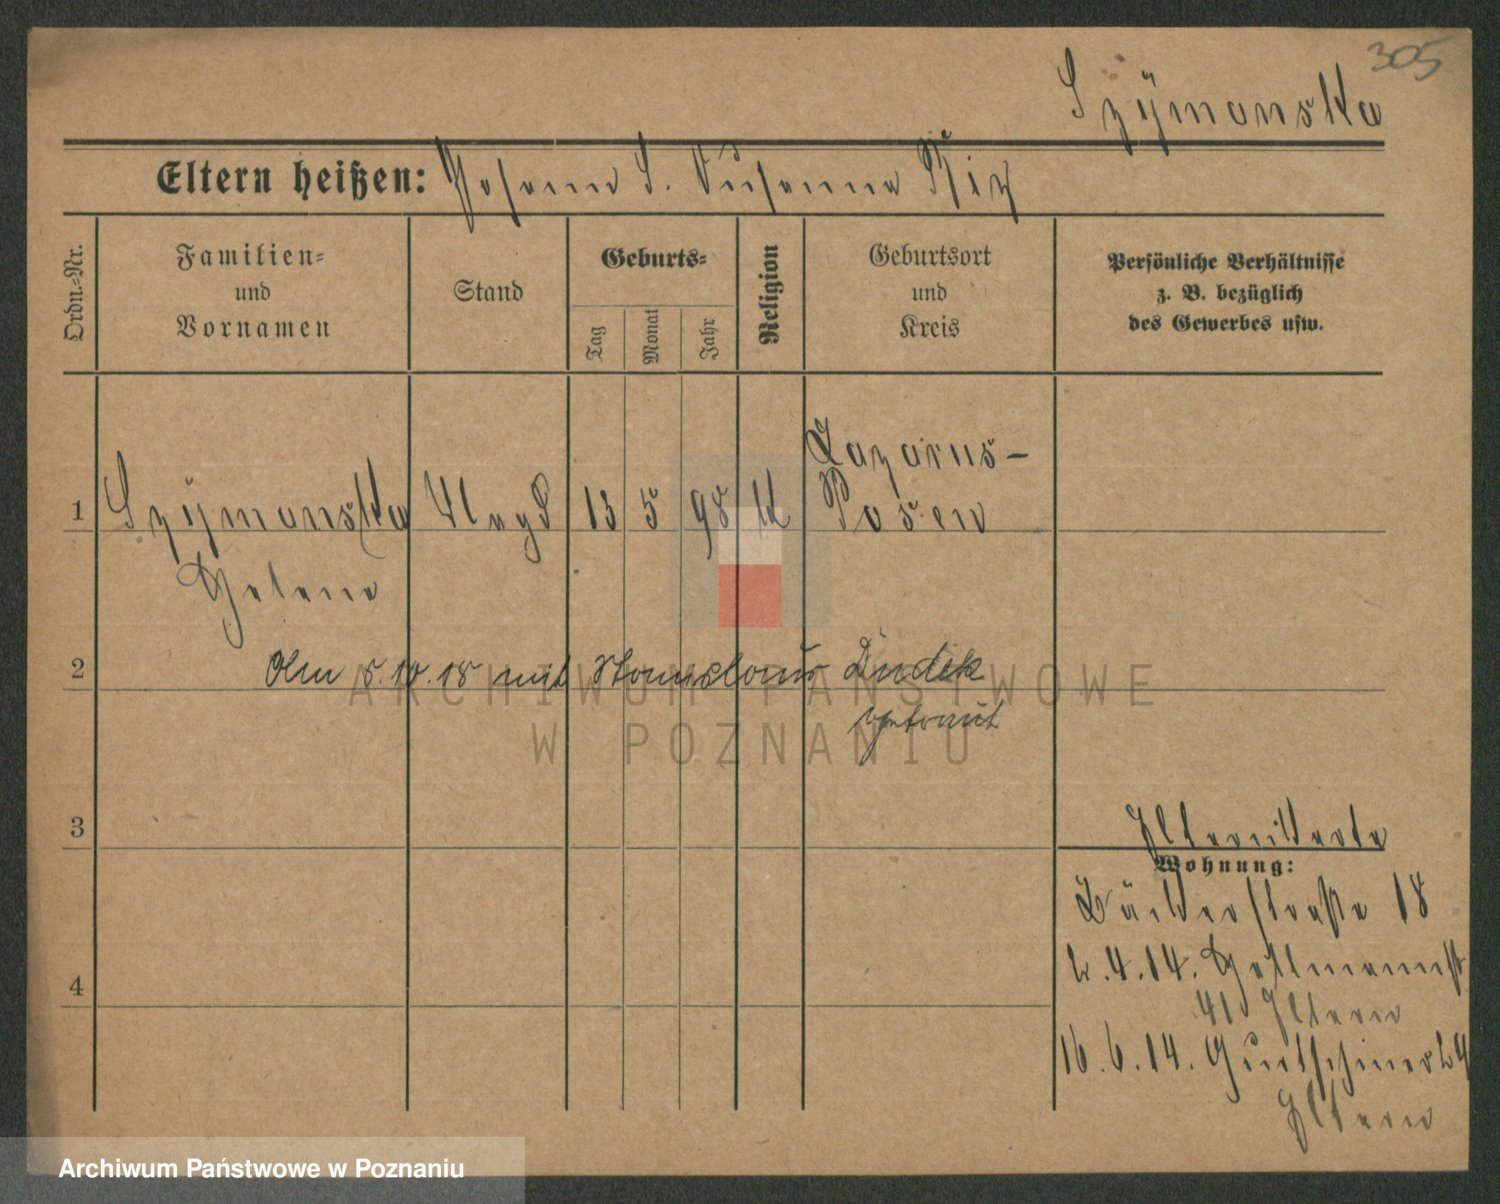 305
Szÿmanska
Eltern heißen: Johann S. Susanna
Ordn.-Nr.
Familien-
und
Vornamen
Stand
Geburts-
Tag
Monat
Jahr
Religion
Geburtsort
und
Kreis
Persönliche Verhältnisse
z. B. bezüglich
des Gewerbes usw.
Lazarus-
1 Szÿmanska Magd 13 5 98 K Posen
Helena
2 Am 5.10.18 mit Stanislaus Dudek
getraut
3 Elternkarte
Wohnung:
Bäckerstraße 18
4
2.4.14.
41 Eltern
16.6.14. Gurtschiner 29
Eltern
ARCHIWUM PAŃSTWOWE
W POZNANIU
Archiwum Państwowe w Poznaniu